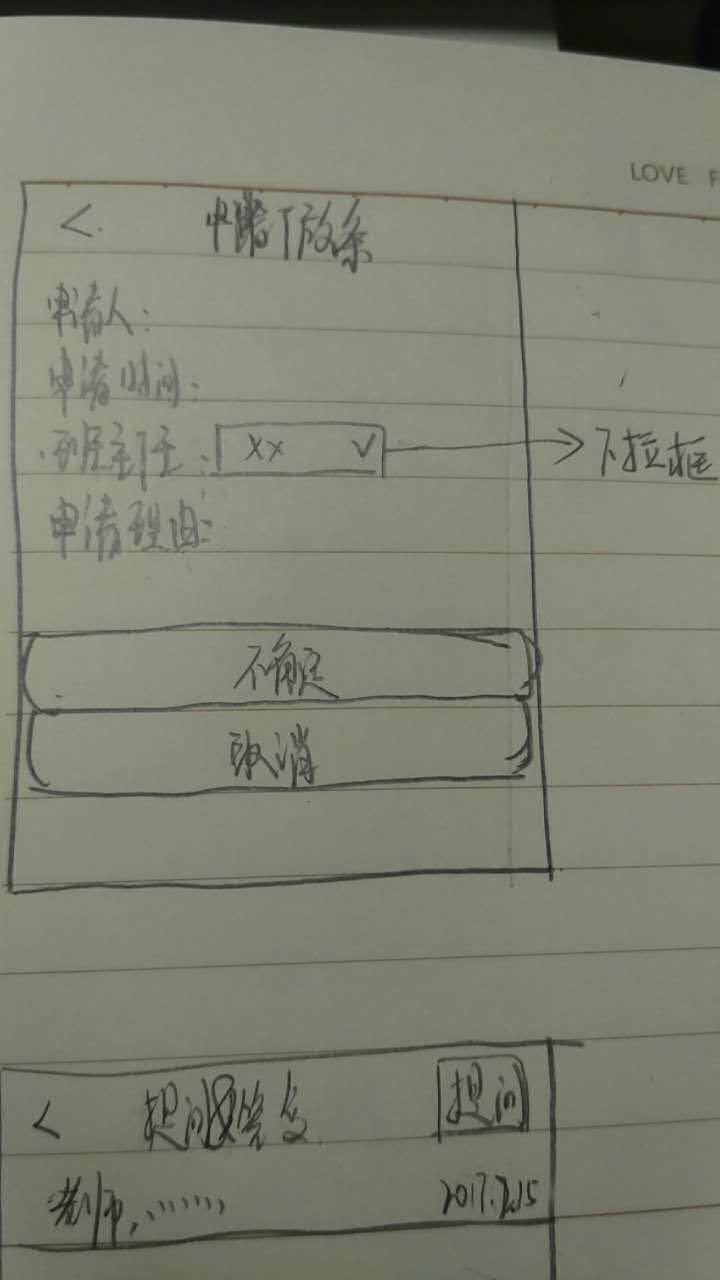 LOVE F
<
申请人：
申请时间：
班主任：xx ∨ → 下拉框
申请理由：
不确定
取消
< 提问&答复 提问
老师，…… 2017.2.15